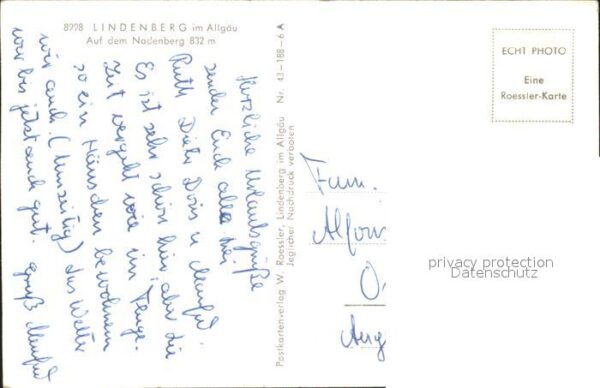 8998 LINDENBERG im Allgäu
Auf dem Nadenberg 832 m
Herzliche Urlaubsgrüße
sendet Euch allen bei
Ruth Dieter Doris u Manfred.
Es ist sehr schön hier, aber die
Zeit vergeht wie im Fluge.
so ein Häuschen bewohnen
wir auch. (Umseitig) das Wetter
war bis jetzt auch gut. Gruß Manfred
Postkartenverlag W. Roessler, Lindenberg im Allgäu Nr. 43-188-6 A
Jeglicher Nachdruck verboten
ECHT PHOTO
Eine
Roessler-Karte
Fam.
Alfons
Aug
privacy protection
Datenschutz